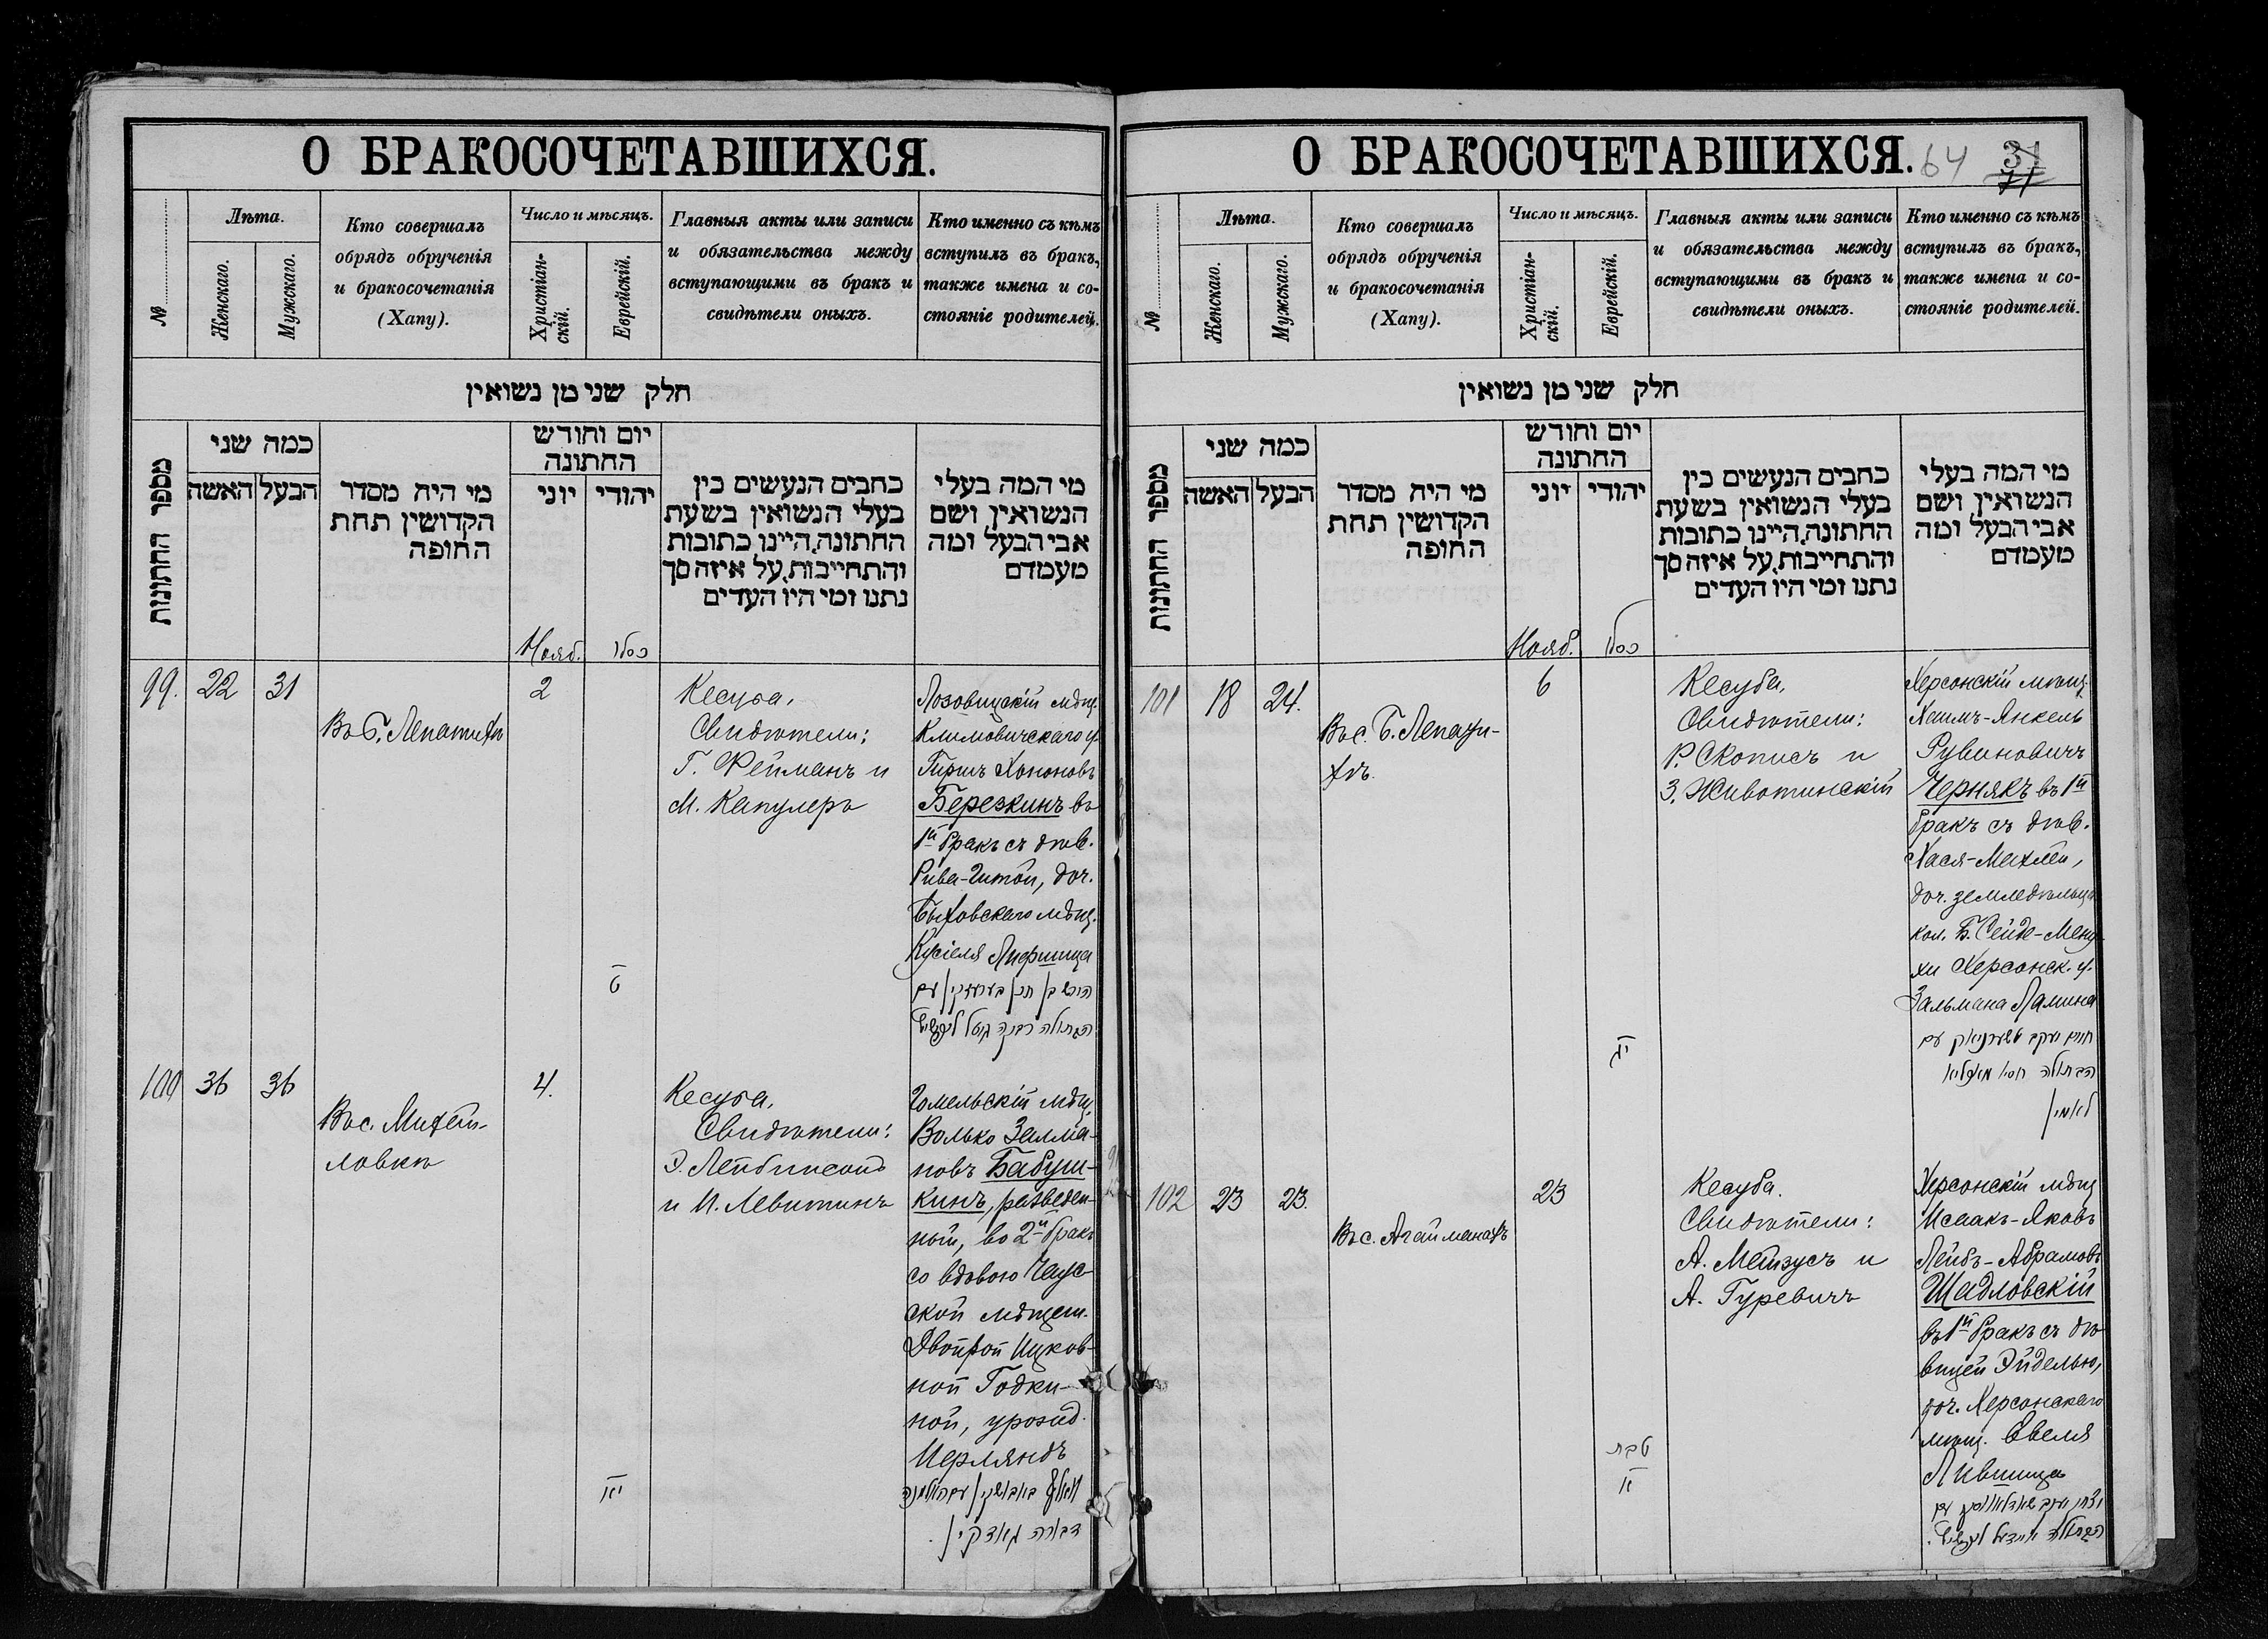 О БРАКОСОЧЕТАВШИХСЯ.
№
Лѣта.
Женскаго.
Мужскаго.
Кто совершалъ
обрядъ обрученія
и бракосочетанія
(Хапу).
Число и мѣсяцъ.
Христіан-
скій.
Еврейскій.
Главныя акты или записи
и обязательства между
вступающими въ бракъ и
свидѣтели оныхъ.
Кто именно съ кѣмъ
вступилъ въ бракъ,
также имена и со-
стояніе родителей.
חלק שני מן נשואין
מספר החתונות
כמה שני
האשה
הבעל
מי היה מסדר
הקדושין תחת
החופה
יום וחודש
החתונה
יוני
יהודי
כתבים הנעשים בין
בעלי הנשואין בשעת
החתונה, היינו כתובות
והתחייבות, על איזה סך
נתנו ומי היו העדים
מי המה בעלי
הנשואין ושם
אבי הבעל ומה
מעמדם
Нояб.
כסלו
99.
22
31
Въ Б. Лепатихѣ
2
ט
Кесуба,
Свидѣтели:
Г. Фейманъ и
М. Капулеръ
Лозовицскій мѣщ.
Климовичскаго у.
Гиршъ Хононовъ
Березкинъ въ
1й бракъ съ дѣв.
Рива-Гитой, доч.
Быховскаго мѣщ.
Кусіеля Лифшица
הירש בן חנן בערעזקין עם
הבתולה רבקה גיטל ליפשיץ
100
36
36
Въ с. Михай-
ловкѣ
4.
יא
Кесуба,
Свидѣтели:
Э. Лейбинсонъ
и И. Левитинъ
Гомельскій мѣщ.
Волько Залма-
новъ Бабуш-
кинъ, разведен-
ный, во 2й бракъ
со вдовою Чаус-
ской мѣщан.
Двойрой Ицков-
ной Годки-
ной, урожд.
Иерляндъ
וואלף באבושקין עם האלמנה
דבורה גאדקין.
О БРАКОСОЧЕТАВШИХСЯ.
64
31
№
Лѣта.
Женскаго.
Мужскаго.
Кто совершалъ
обрядъ обрученія
и бракосочетанія
(Хапу).
Число и мѣсяцъ.
Христіан-
скій.
Еврейскій.
Главныя акты или записи
и обязательства между
вступающими въ бракъ и
свидѣтели оныхъ.
Кто именно съ кѣмъ
вступилъ въ бракъ,
также имена и со-
стояніе родителей.
חלק שני מן נשואין
מספר החתונות
כמה שני
האשה
הבעל
מי היה מסדר
הקדושין תחת
החופה
יום וחודש
החתונה
יוני
יהודי
כתבים הנעשים בין
בעלי הנשואין בשעת
החתונה, היינו כתובות
והתחייבות, על איזה סך
נתנו ומי היו העדים
מי המה בעלי
הנשואין ושם
אבי הבעל ומה
מעמדם
Нояб.
כסלו
101
18
24.
Въ с. Б. Лепати-
хѣ.
6
יג
Кесуба,
Свидѣтели:
Р. Скописъ и
З. Животинскій
Херсонскій мѣщ.
Хаимъ-Янкель
Рувиновичъ
Чернякъ въ 1й
бракъ съ дѣв.
Хася-Махлей,
доч. земледѣльца
кол. Б. Сейде-Мену-
хи Херсонск. у.
Зальмана Ламина
חיים יעקב טשערניאק עם
הבתולה חסיא מאכליא
לאמין
102
23
23.
Въ с. Агайманахъ
23
טבת
א
Кесуба.
Свидѣтели:
А. Мейзусъ и
А. Гуревичъ
Херсонскій мѣщ.
Исаакъ-Яковъ
Лейбъ-Абрамовъ
Шадловскій
въ 1й бракъ съ дѣ-
вицей Эйделью,
доч. Херсонскаго
мѣщ. Евеля
Лившица
יצחק יעקב שאדלאווסקי עם
הבתולה איידעל ליפשיץ.